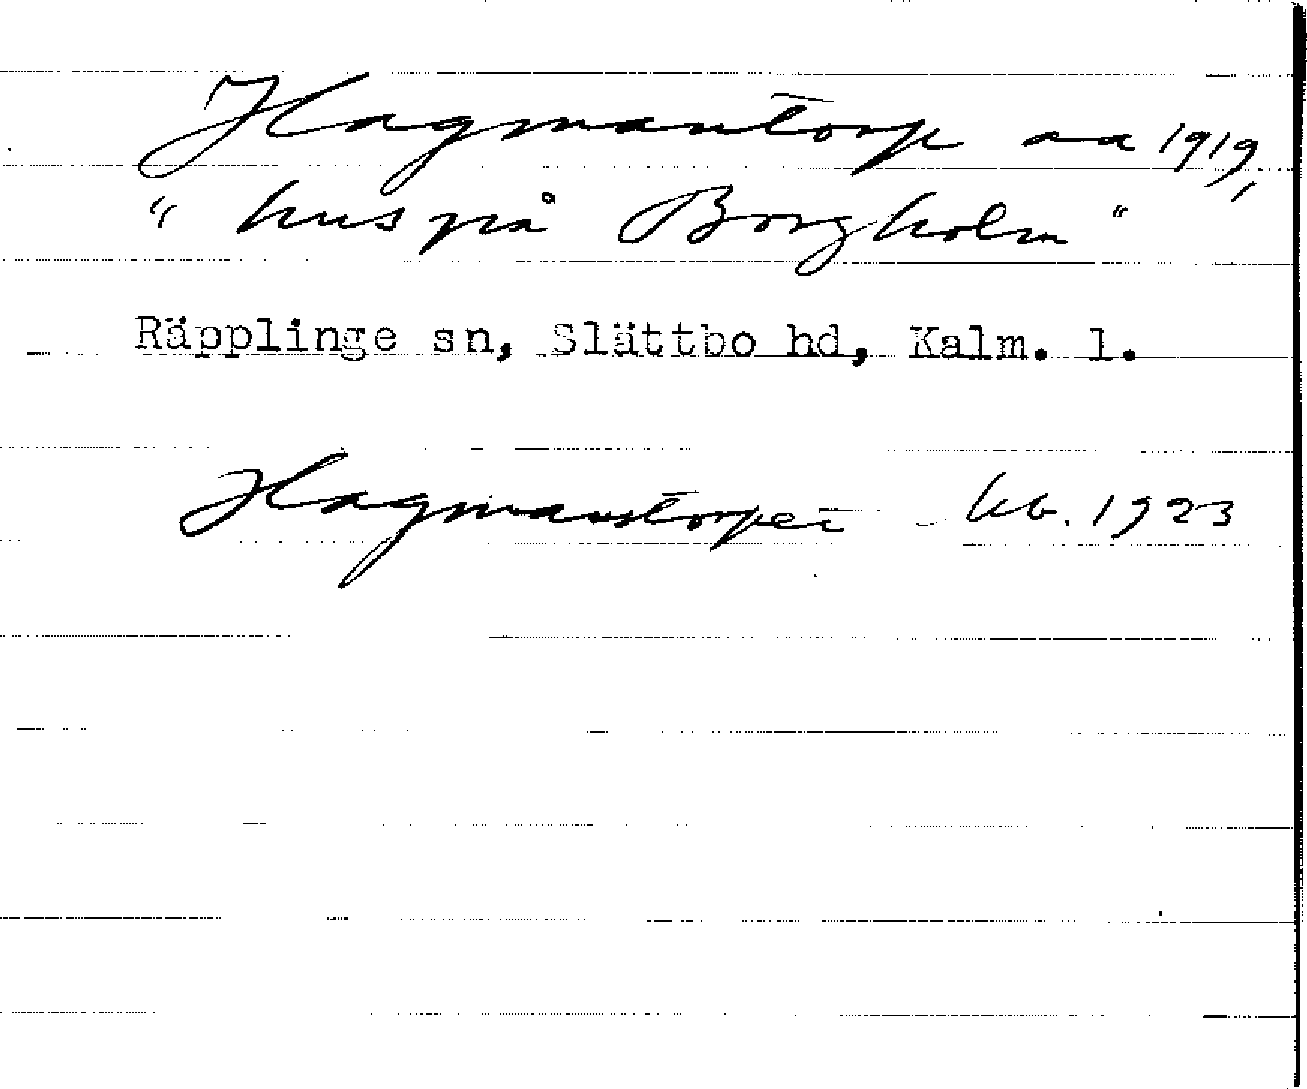 Hagmantorp aa 1919,
"hus på Borgholm"
Räpplinge sn, Slättbo hd, Kalm. l.
Hagmanstorpet kb. 1923